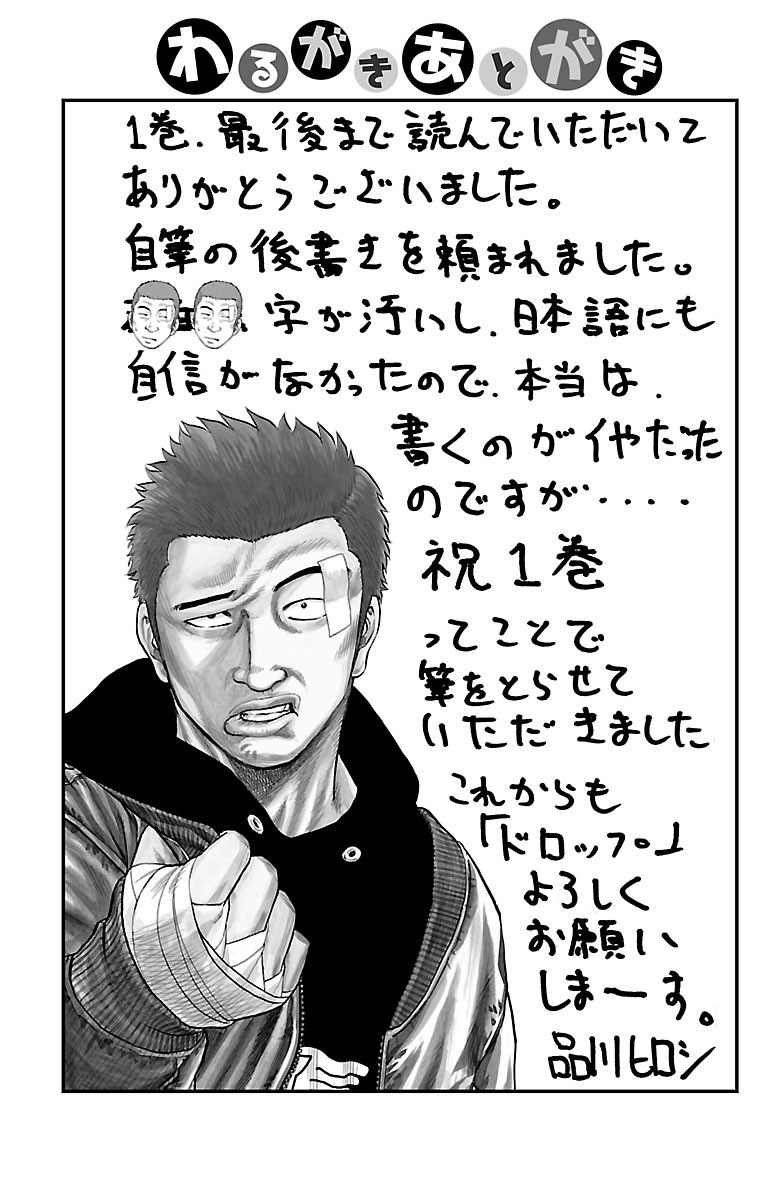 わるがきあとがき
1巻、最後まで読んでいただいて
ありがとうございました。
自筆の後書きを頼まれました。
字が汚いし、日本語にも
自信がなかったので、本当は、
書くのがイやだった
のですが・・・・
祝1巻
ってことで
筆をとらせて
いただきました
これからも
「ドロップ」
よろしく
お願い
しまーす。
品川ヒロシ